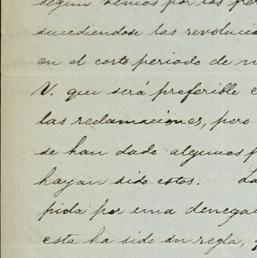 segun vemos por los per
sucediendose las revolucio
en el corto periodo de m
V. que será preferible e
las reclamaciones, pero
se han dado algunos p
hayan sido estos. La
pida por una denega
esta ha sido en regla, y